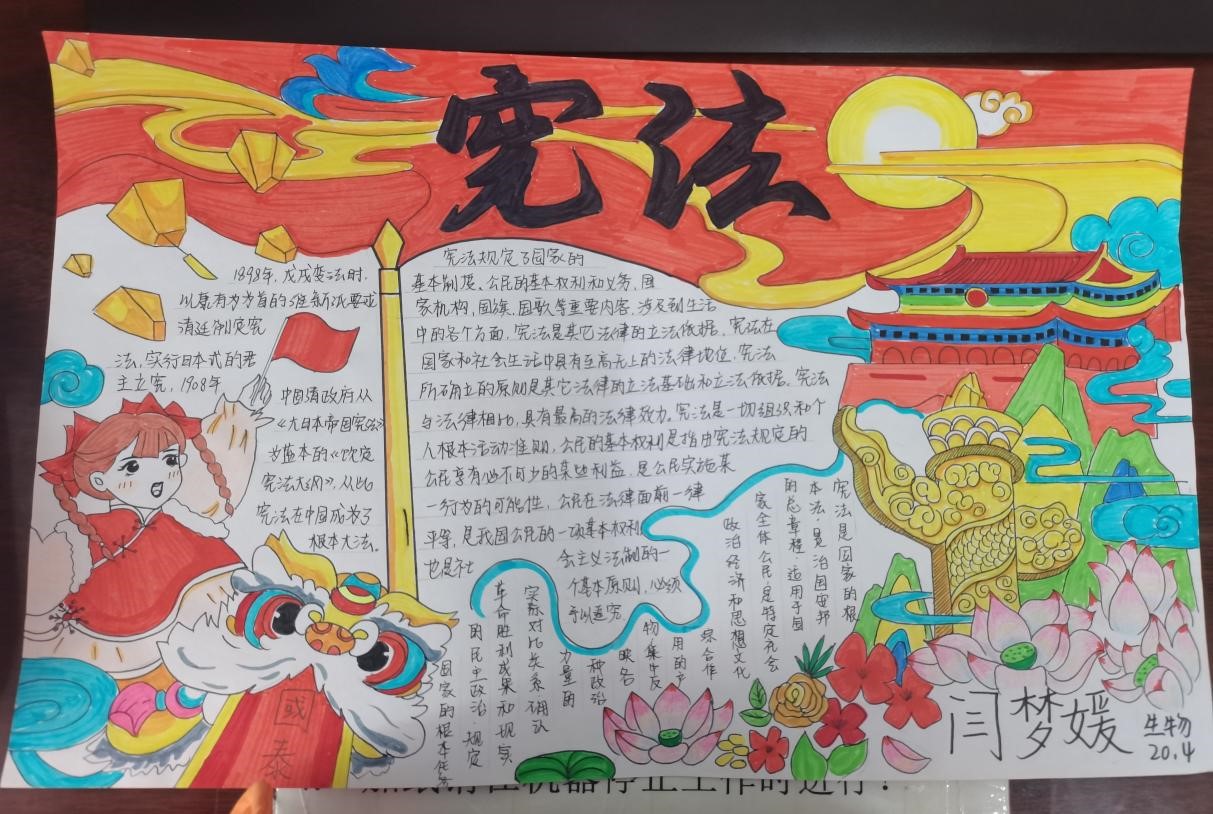 宪法
1898年，戊戌变法时，
以康有为为首的维新派要求
清廷制定宪
法，实行日本式的君
主立宪，1908年
中国清政府从
《大日本帝国宪法》
为蓝本的《钦定
宪法大纲》，从此
宪法在中国成为了
根本大法。
宪法规定了国家的
基本制度、公民的基本权利和义务、国
家机构，国旗、国歌等重要内容，涉及到生活
中的各个方面，宪法是其它法律的立法依据，宪法在
国家和社会生活中具有至高无上的法律地位，宪法
所确立的原则是其它法律的立法基础和立法依据。宪法
与法律相比，具有最高的法律效力。宪法是一切组织和个
人根本活动准则，公民的基本权利是指由宪法规定的
公民享有必不可少的某些利益，是公民实施某
一行为的可能性，公民在法律面前一律
平等，是我国公民的一项基本权利
也是社
会主义法制的一
个基本原则，必须
予以追究
宪法是国家的根
本法，是治国安邦
的总章程，适用于国
家全体公民，是特定社会
政治经济和思想文化
综合作
用的产
物，集中反
映各
种政治
力量的
实际对比关系，确认
革命胜利成果和现实
的民主政治，规定
国家的根本任务
國
泰
闫梦媛
生物
20.4